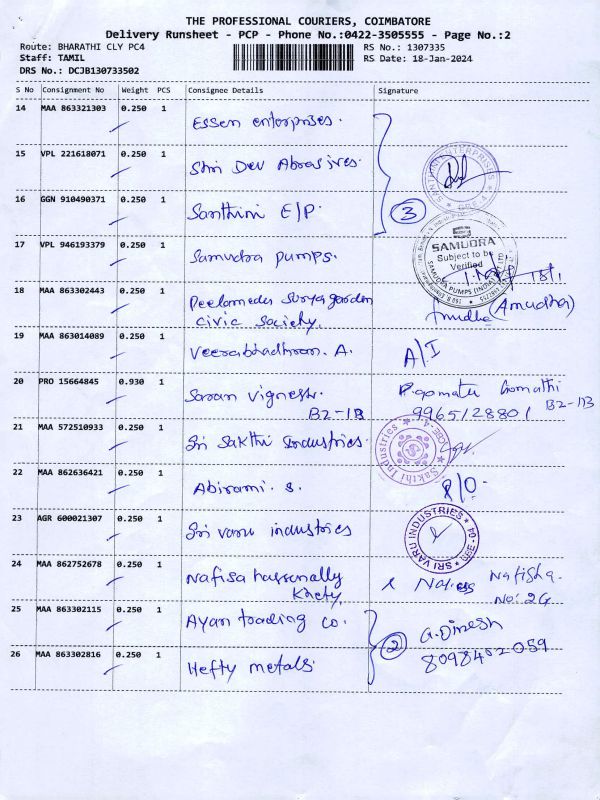 THE PROFESSIONAL COURIERS, COIMBATORE
Delivery Runsheet - PCP - Phone No.:0422-3505555 - Page No.:2
Route: BHARATHI CLY PC4
RS No.: 1307335
Staff: TAMIL
RS Date: 18-Jan-2024
DRS No.: DCJB130733502
S No Consignment No Weight PCS Consignee Details Signature
14 MAA 863321303 0.250 1 Essen enterprises.
15 VPL 221618071 0.250 1 Shri Dev Abrasives.
16 GGN 910490371 0.250 1 Santhini E/P. 3
17 VPL 946193379 0.250 1 Samudra pumps.
SAMUDRA
Subject to be
Verified
SAMUDRA PUMPS (INDIA)
18 MAA 863302443 0.250 1 Peelamedu Surya garden
civic Society. Anudha (Anudha)
19 MAA 863014089 0.250 1 Veerabhadhran. A. A/I
20 PRO 15664845 0.930 1 Saran vignesh. Gomathi
B2-11B 9965128801 B2-11B
21 MAA 572510933 0.250 1 Sri Sakthi Industries.
Sakthi Industries
22 MAA 862636421 0.250 1 Abirami. S. S/O.
23 AGR 600021307 0.250 1 Sri varu industries
SRI VARU INDUSTRIES
24 MAA 862752678 0.250 1 Nafisa hassanally Nafisha.
No: 2G
25 MAA 863302115 0.250 1 Ayan trading co. G. Dinesh
2 8098402059
26 MAA 863302816 0.250 1 Hefty metals.